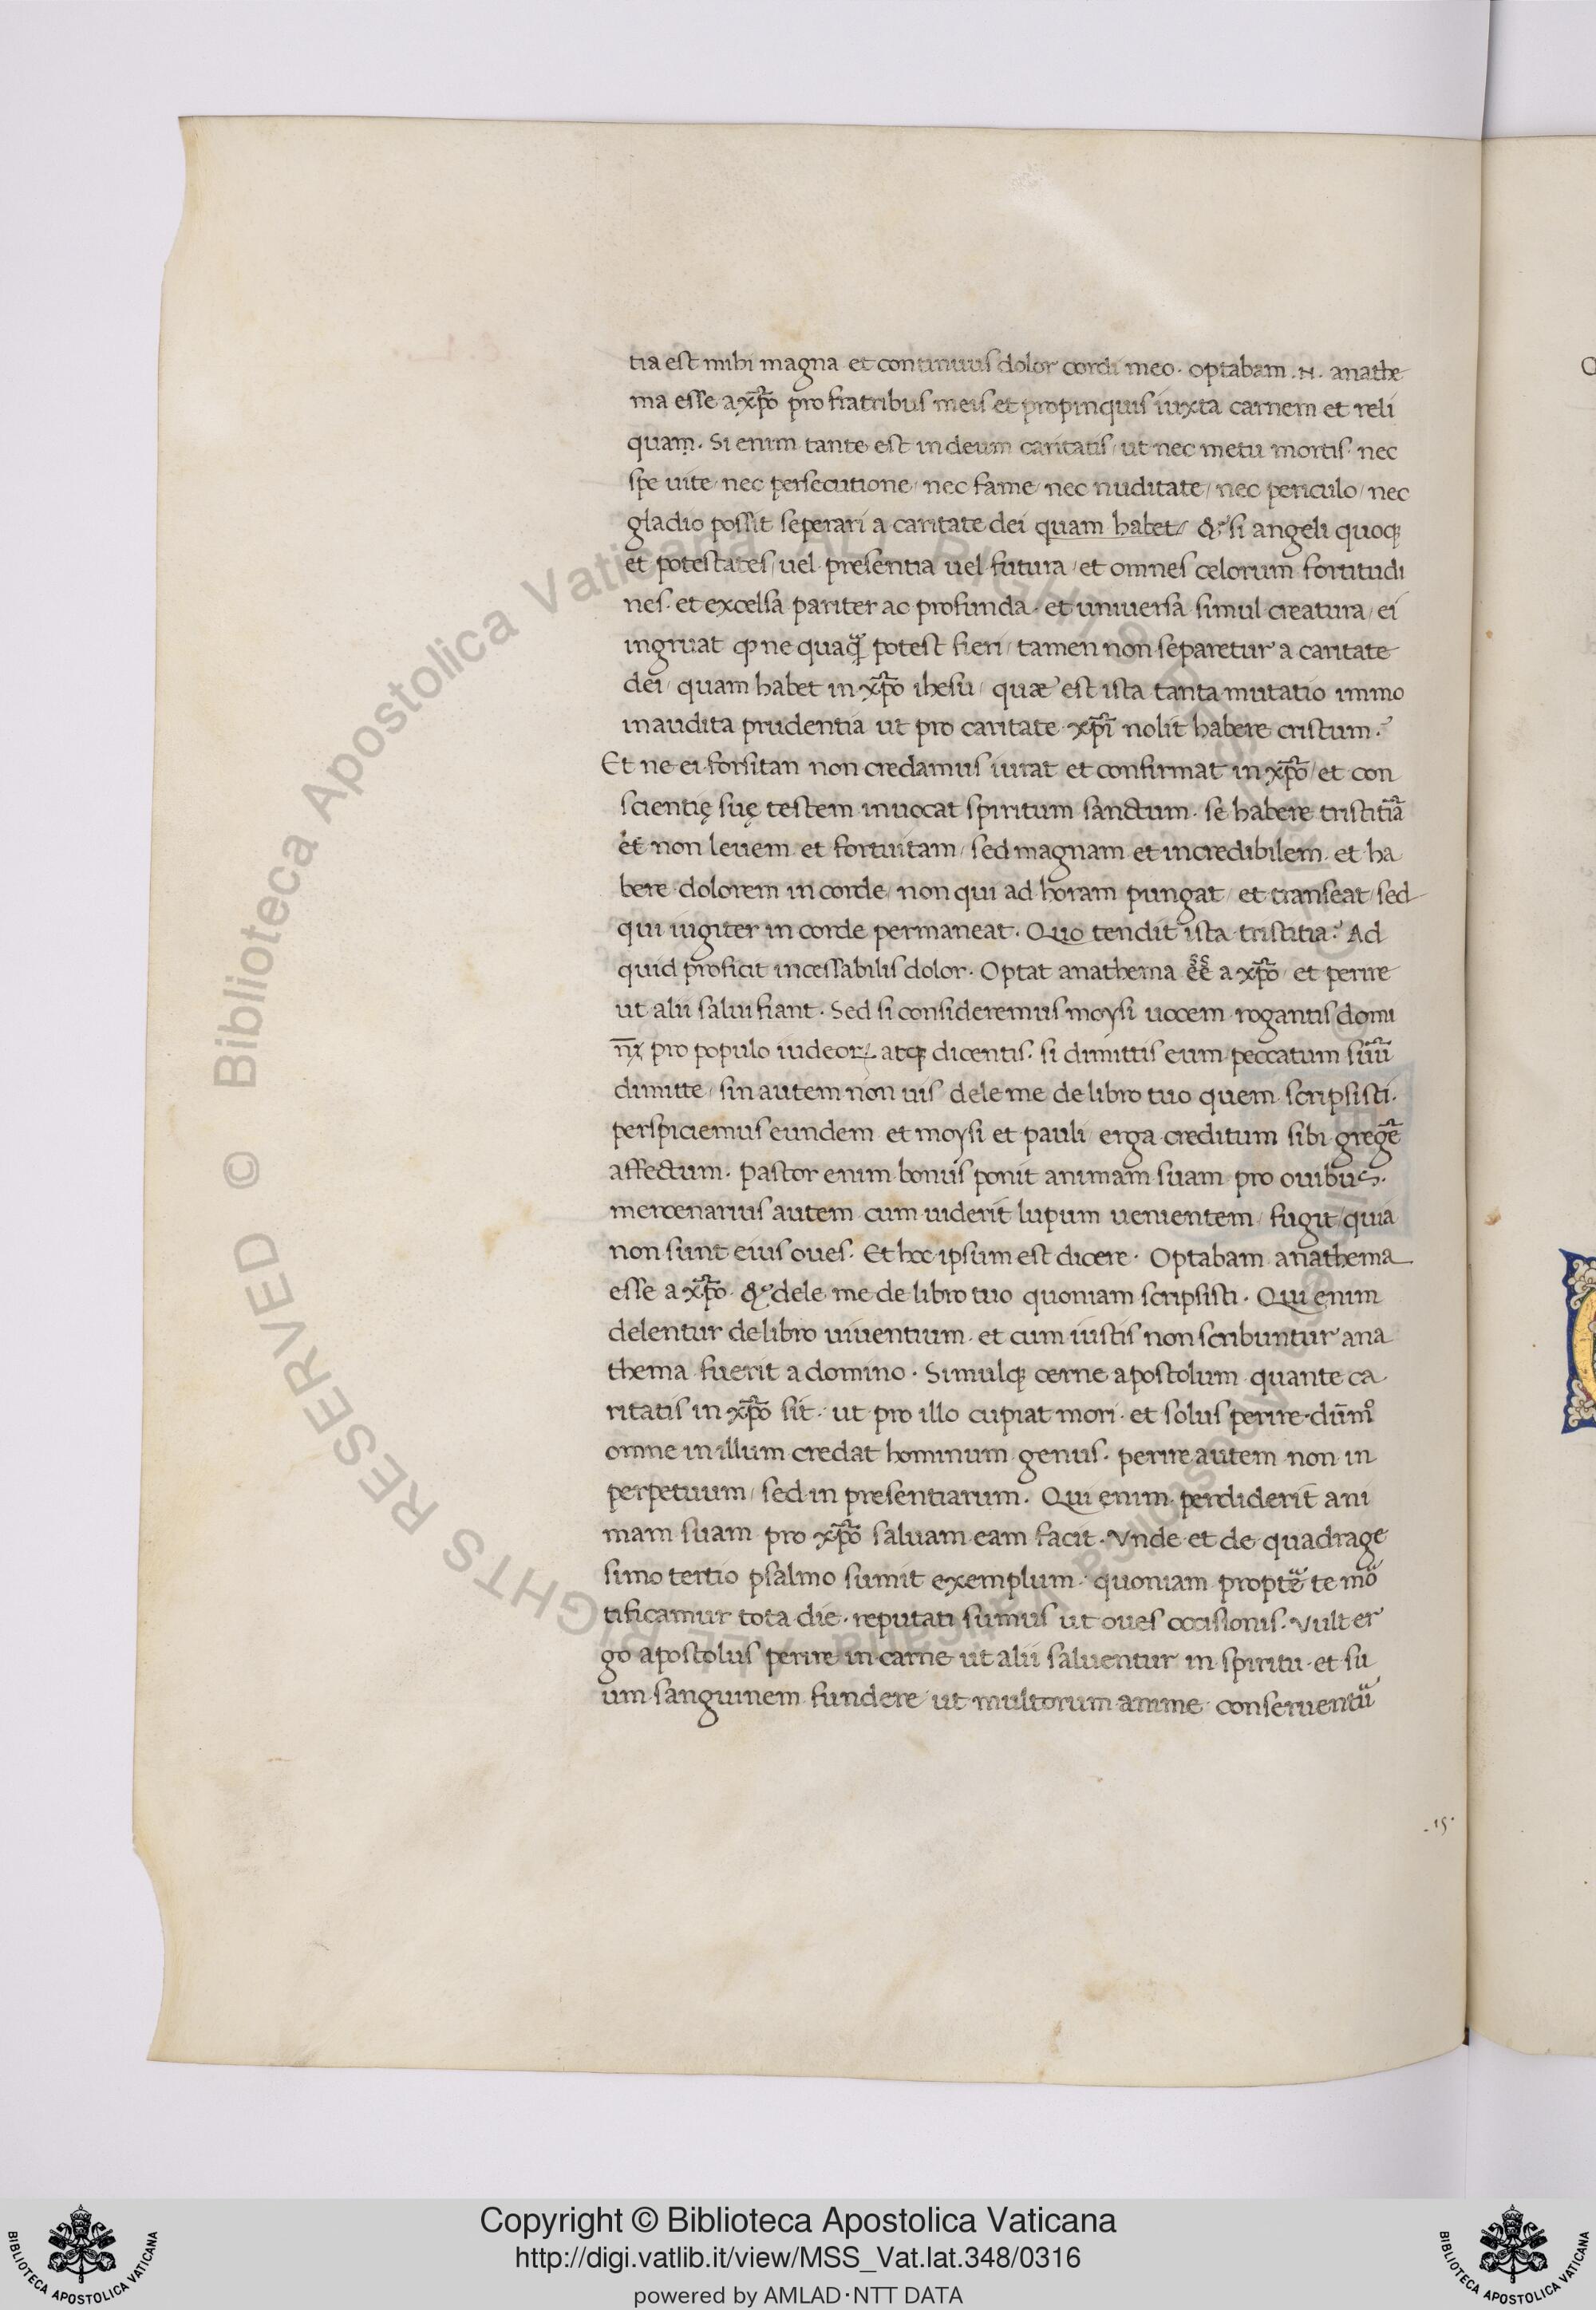 tia est mihi magna et continuus dolor cordi meo. optabam .N. anathe
ma esse a xp̄o pro fratribus meis et propinquis iuxta carnem et reli
quam. Si enim tante est in deum caritatis, ut nec metu mortis. nec
spe uite, nec persecutione, nec fame, nec nuditate, nec periculo, nec
gladio possit seperari a caritate dei quam habet, & si angeli quoqꝫ
et potestates, uel presentia uel futura, et omnes celorum fortitudi
nes. et excelsa pariter ac profunda. et uniuersa simul creatura, ei
ingruat ꝙ ne quaqꝫ̃ potest fieri, tamen non separetur a caritate
dei, quam habet in xp̄o ihesu, quæ est ista tanta mutatio immo
inaudita prudentia ut pro caritate xp̄i nolit habere cristum?
Et ne ei forsitan non credamus iurat et confirmat in xp̄o, et con
scientię suę testem inuocat spiritum sanctum. se habere tristitiā
et non leuem et fortuitam, sed magnam et incredibilem. et ha
bere dolorem in corde, non qui ad horam pungat, et transeat, sed
qui iugiter in corde permaneat. Quo tendit ista tristitia? Ad
quid proficit incessabilis dolor. Optat anathema ēē a xp̄o, et perire
ut alii salui fiant. Sed si consideremus moysi uocem rogantis domi
nȳ pro popolo iudeoꝝ atqꝫ dicentis. si dimittis eum peccatum suū
dimitte, sin autem non uis dele me de libro tuo quem scripsisti.
perspiciemus eundem et moysi et pauli erga creditum sibi gregē
affectum. Pastor enim bonus ponit animam suam pro ouibus.
mercenarius autem cum uiderit lupum uenientem, fugit, quia
non sunt eius oues. Et hoc ipsum est dicere. Optabam anathema
esse a xp̄o. & dele me de libro tuo quoniam scripsisti. Qui enim
delentur de libro uiuentium. et cum iustis non scribuntur ana
thema fuerit a domino. Simulqꝫ cerne apostolum quante ca
ritatis in xp̄o sit. ut pro illo cupiat mori. et solus perire. dūmͦ
omne in illum credat hominum genus. perire autem non in
perpetuum, sed in presentiarum. Qui enim perdiderit ani
mam suam pro xp̄o saluam eam facit. Vnde et de quadrage
simo tertio psalmo sumit exemplum. quoniam propte᷑ te mo᷑
tificamur tota die. reputati sumus ut oues occisionis. Vult er
go apostolus perire in carne ut alii saluentur in spiritu. et su
um sanguinem fundere ut multorum anime conseruentu᷑
.15.
Copyright © Biblioteca Apostolica Vaticana
http://digi.vatlib.it/view/MSS_Vat.lat.348/0316
powered by AMLAD·NTT DATA